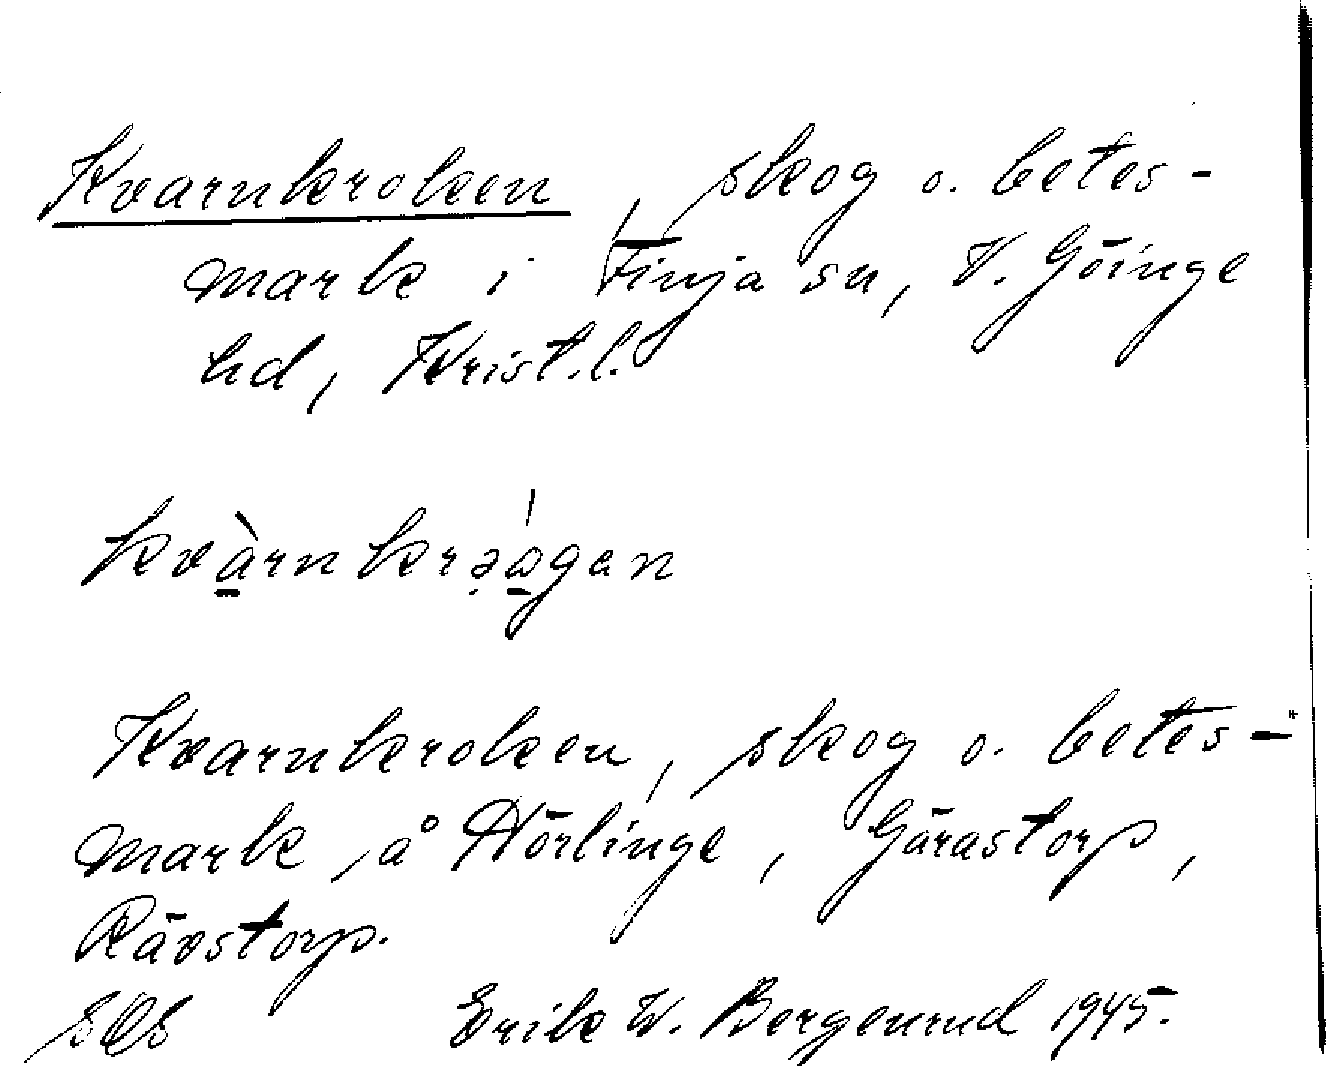 Kvarnkroken, skog o. betes-
mark i Finja sn, V. Göinge
hd, Krist.l.
kvàrnkrəágan
Kvarnkroken, skog o. betes-
mark, å Hörlinge, Gärastorp,
Rävstorp.
Erik W. Bergenrud 1945.